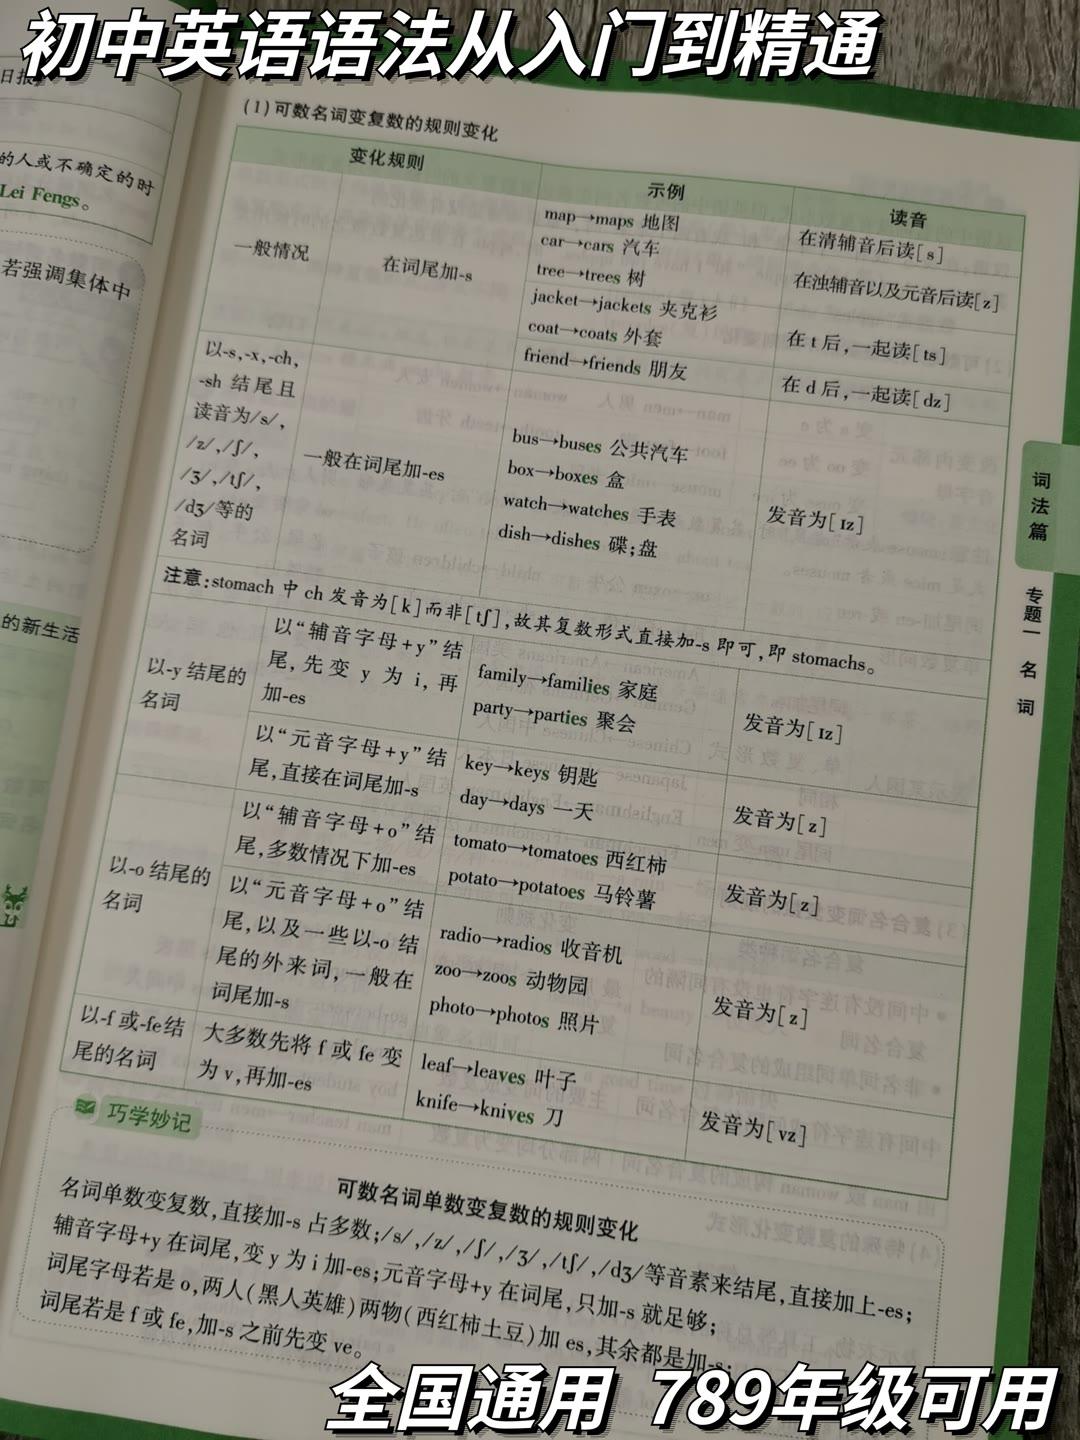 初中英语语法从入门到精通
日报
的人或不确定的时
Lei Fengs。
若强调集体中
的新生活
(1)可数名词变复数的规则变化
变化规则
示例
读音
一般情况
在词尾加-s
map→maps 地图
car→cars 汽车
tree→trees 树
jacket→jackets 夹克衫
coat→coats 外套
friend→friends 朋友
在清辅音后读[s]
在浊辅音以及元音后读[z]
在 t 后,一起读[ts]
在 d 后,一起读[dz]
以-s,-x,-ch,
-sh 结尾且
读音为/s/,
/z/,/ʃ/,
/ʒ/,/tʃ/,
/dʒ/等的
名词
一般在词尾加-es
bus→buses 公共汽车
box→boxes 盒
watch→watches 手表
dish→dishes 碟;盘
发音为[ɪz]
注意:stomach 中 ch 发音为[k]而非[tʃ],故其复数形式直接加-s 即可,即 stomachs。
以-y 结尾的
名词
以“辅音字母+y”结
尾,先变 y 为 i,再
加-es
family→families 家庭
party→parties 聚会
发音为[ɪz]
以“元音字母+y”结
尾,直接在词尾加-s
key→keys 钥匙
day→days 一天
发音为[z]
以-o 结尾的
名词
以“辅音字母+o”结
尾,多数情况下加-es
tomato→tomatoes 西红柿
potato→potatoes 马铃薯
发音为[z]
以“元音字母+o”结
尾,以及一些以-o 结
尾的外来词,一般在
词尾加-s
radio→radios 收音机
zoo→zoos 动物园
photo→photos 照片
发音为[z]
以-f 或-fe结
尾的名词
大多数先将 f 或 fe 变
为 v,再加-es
leaf→leaves 叶子
knife→knives 刀
发音为[vz]
巧学妙记
可数名词单数变复数的规则变化
名词单数变复数,直接加-s 占多数;/s/,/z/,/ʃ/,/ʒ/,/tʃ/,/dʒ/等音素来结尾,直接加上-es;
辅音字母+y 在词尾,变 y 为 i 加-es;元音字母+y 在词尾,只加-s 就足够;
词尾字母若是 o,两人(黑人英雄)两物(西红柿土豆)加 es,其余都是加-s;
词尾若是 f 或 fe,加-s 之前先变 ve。
词法篇
专题一 名词
全国通用 789年级可用